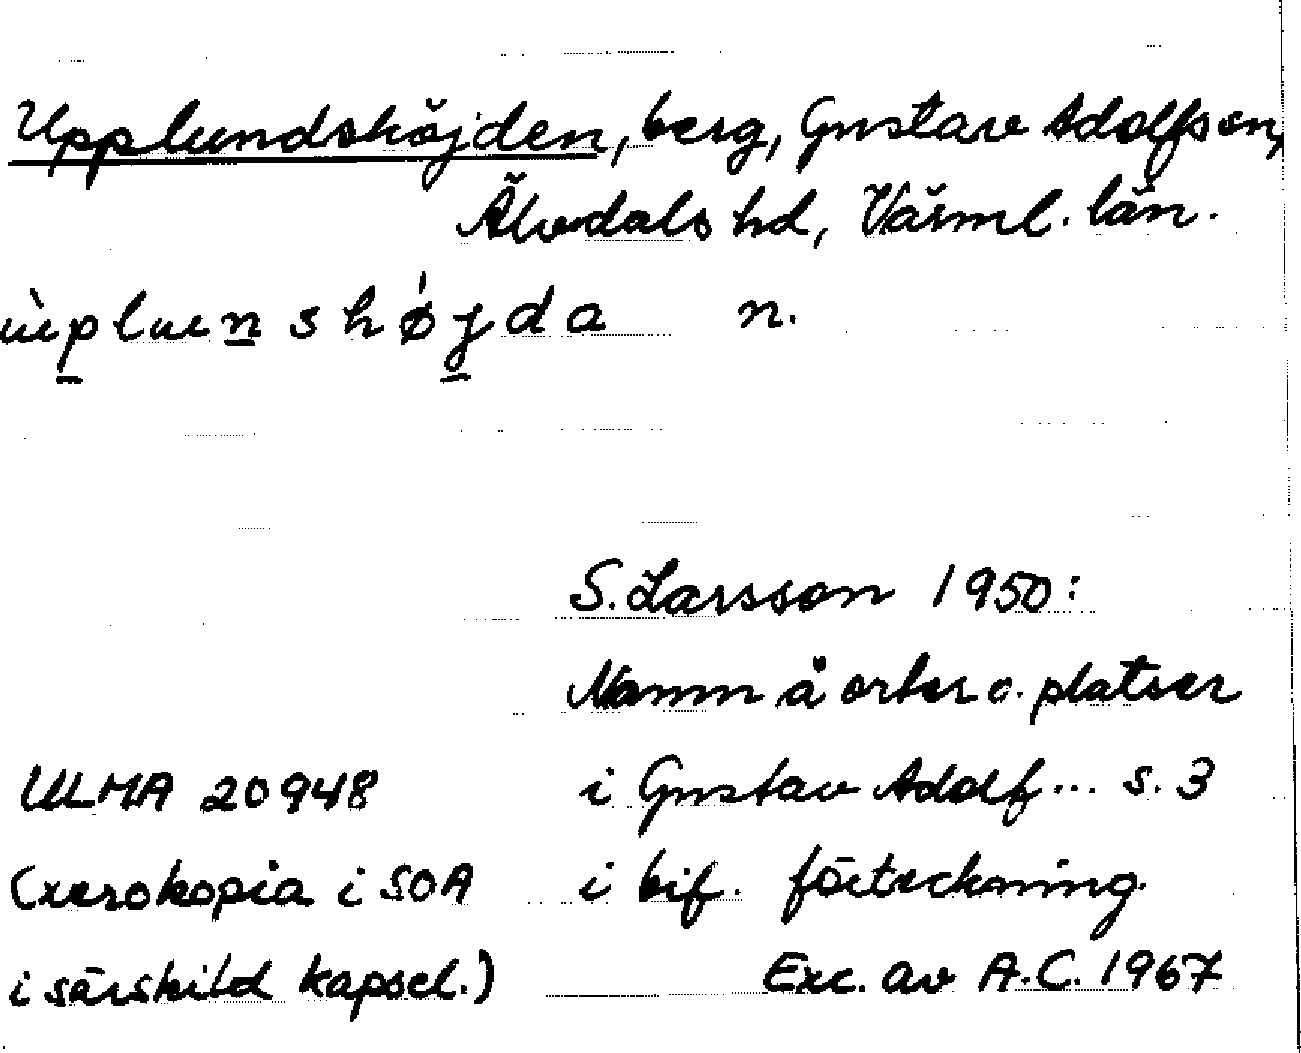 Upplundshöjden, berg, Gustav Adolfs sn,
Älvdals hd, Värml. län.
ùplunshǿjda n.
S. Larsson 1950:
Namn å orter o. platser
ULMA 20948 i Gustav Adolf... s. 3
(xerokopia i SOA i bif. förteckning.
i särskild kapsel.) Exc. av A.C. 1967